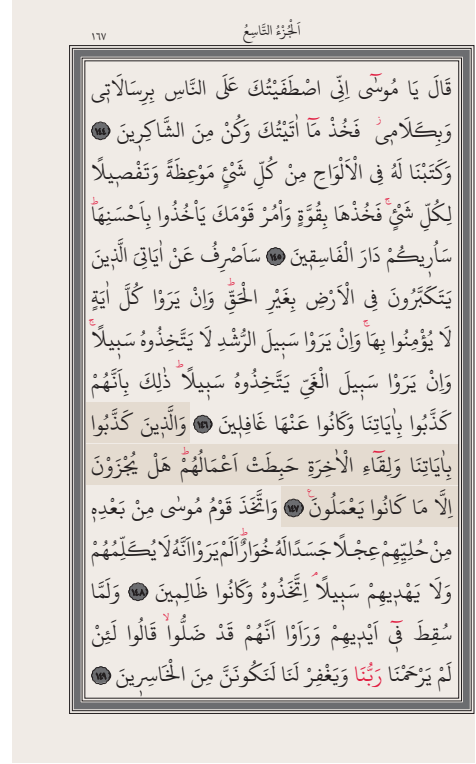 ١٦٧
اَلْجُزْءُ التَّاسِعُ
قَالَ يَا مُوسٰٓى اِنِّى اصْطَفَيْتُكَ عَلَى النَّاسِ بِرِسَالَاتٖى
وَبِكَلَامٖىۘ فَخُذْ مَٓا اٰتَيْتُكَ وَكُنْ مِنَ الشَّاكِرٖينَ ١٤٤
وَكَتَبْنَا لَهُ فِى الْاَلْوَاحِ مِنْ كُلِّ شَیْءٍ مَوْعِظَةً وَتَفْصٖيلًا
لِكُلِّ شَیْءٍۚ فَخُذْهَا بِقُوَّةٍ وَاْمُرْ قَوْمَكَ يَاْخُذُوا بِاَحْسَنِهَاؕ
سَاُرٖيكُمْ دَارَ الْفَاسِقٖينَ ١٤٥ سَاَصْرِفُ عَنْ اٰيَاتِىَ الَّذٖينَ
يَتَكَبَّرُونَ فِى الْاَرْضِ بِغَيْرِ الْحَقِّؕ وَاِنْ يَرَوْا كُلَّ اٰيَةٍ
لَا يُؤْمِنُوا بِهَاۚ وَاِنْ يَرَوْا سَبٖيلَ الرُّشْدِ لَا يَتَّخِذُوهُ سَبٖيلًاۚ
وَاِنْ يَرَوْا سَبٖيلَ الْغَىِّ يَتَّخِذُوهُ سَبٖيلًاؕ ذٰلِكَ بِاَنَّهُمْ
كَذَّبُوا بِاٰيَاتِنَا وَكَانُوا عَنْهَا غَافِلٖينَ ١٤٦ وَالَّذٖينَ كَذَّبُوا
بِاٰيَاتِنَا وَلِقَٓاءِ الْاٰخِرَةِ حَبِطَتْ اَعْمَالُهُمْؕ هَلْ يُجْزَوْنَ
اِلَّا مَا كَانُوا يَعْمَلُونَࣖ ١٤٧ وَاتَّخَذَ قَوْمُ مُوسٰى مِنْ بَعْدِهٖ
مِنْ حُلِيِّهِمْ عِجْلًا جَسَدًا لَهُ خُوَارٌؕ اَلَمْ يَرَوْا اَنَّهُ لَا يُكَلِّمُهُمْ
وَلَا يَهْدٖيهِمْ سَبٖيلًاۘ اِتَّخَذُوهُ وَكَانُوا ظَالِمٖينَ ١٤٨ وَلَمَّا
سُقِطَ فٖٓى اَيْدٖيهِمْ وَرَاَوْا اَنَّهُمْ قَدْ ضَلُّواۙ قَالُوا لَئِنْ
لَمْ يَرْحَمْنَا رَبُّنَا وَيَغْفِرْ لَنَا لَنَكُونَنَّ مِنَ الْخَاسِرٖينَ ١٤٩